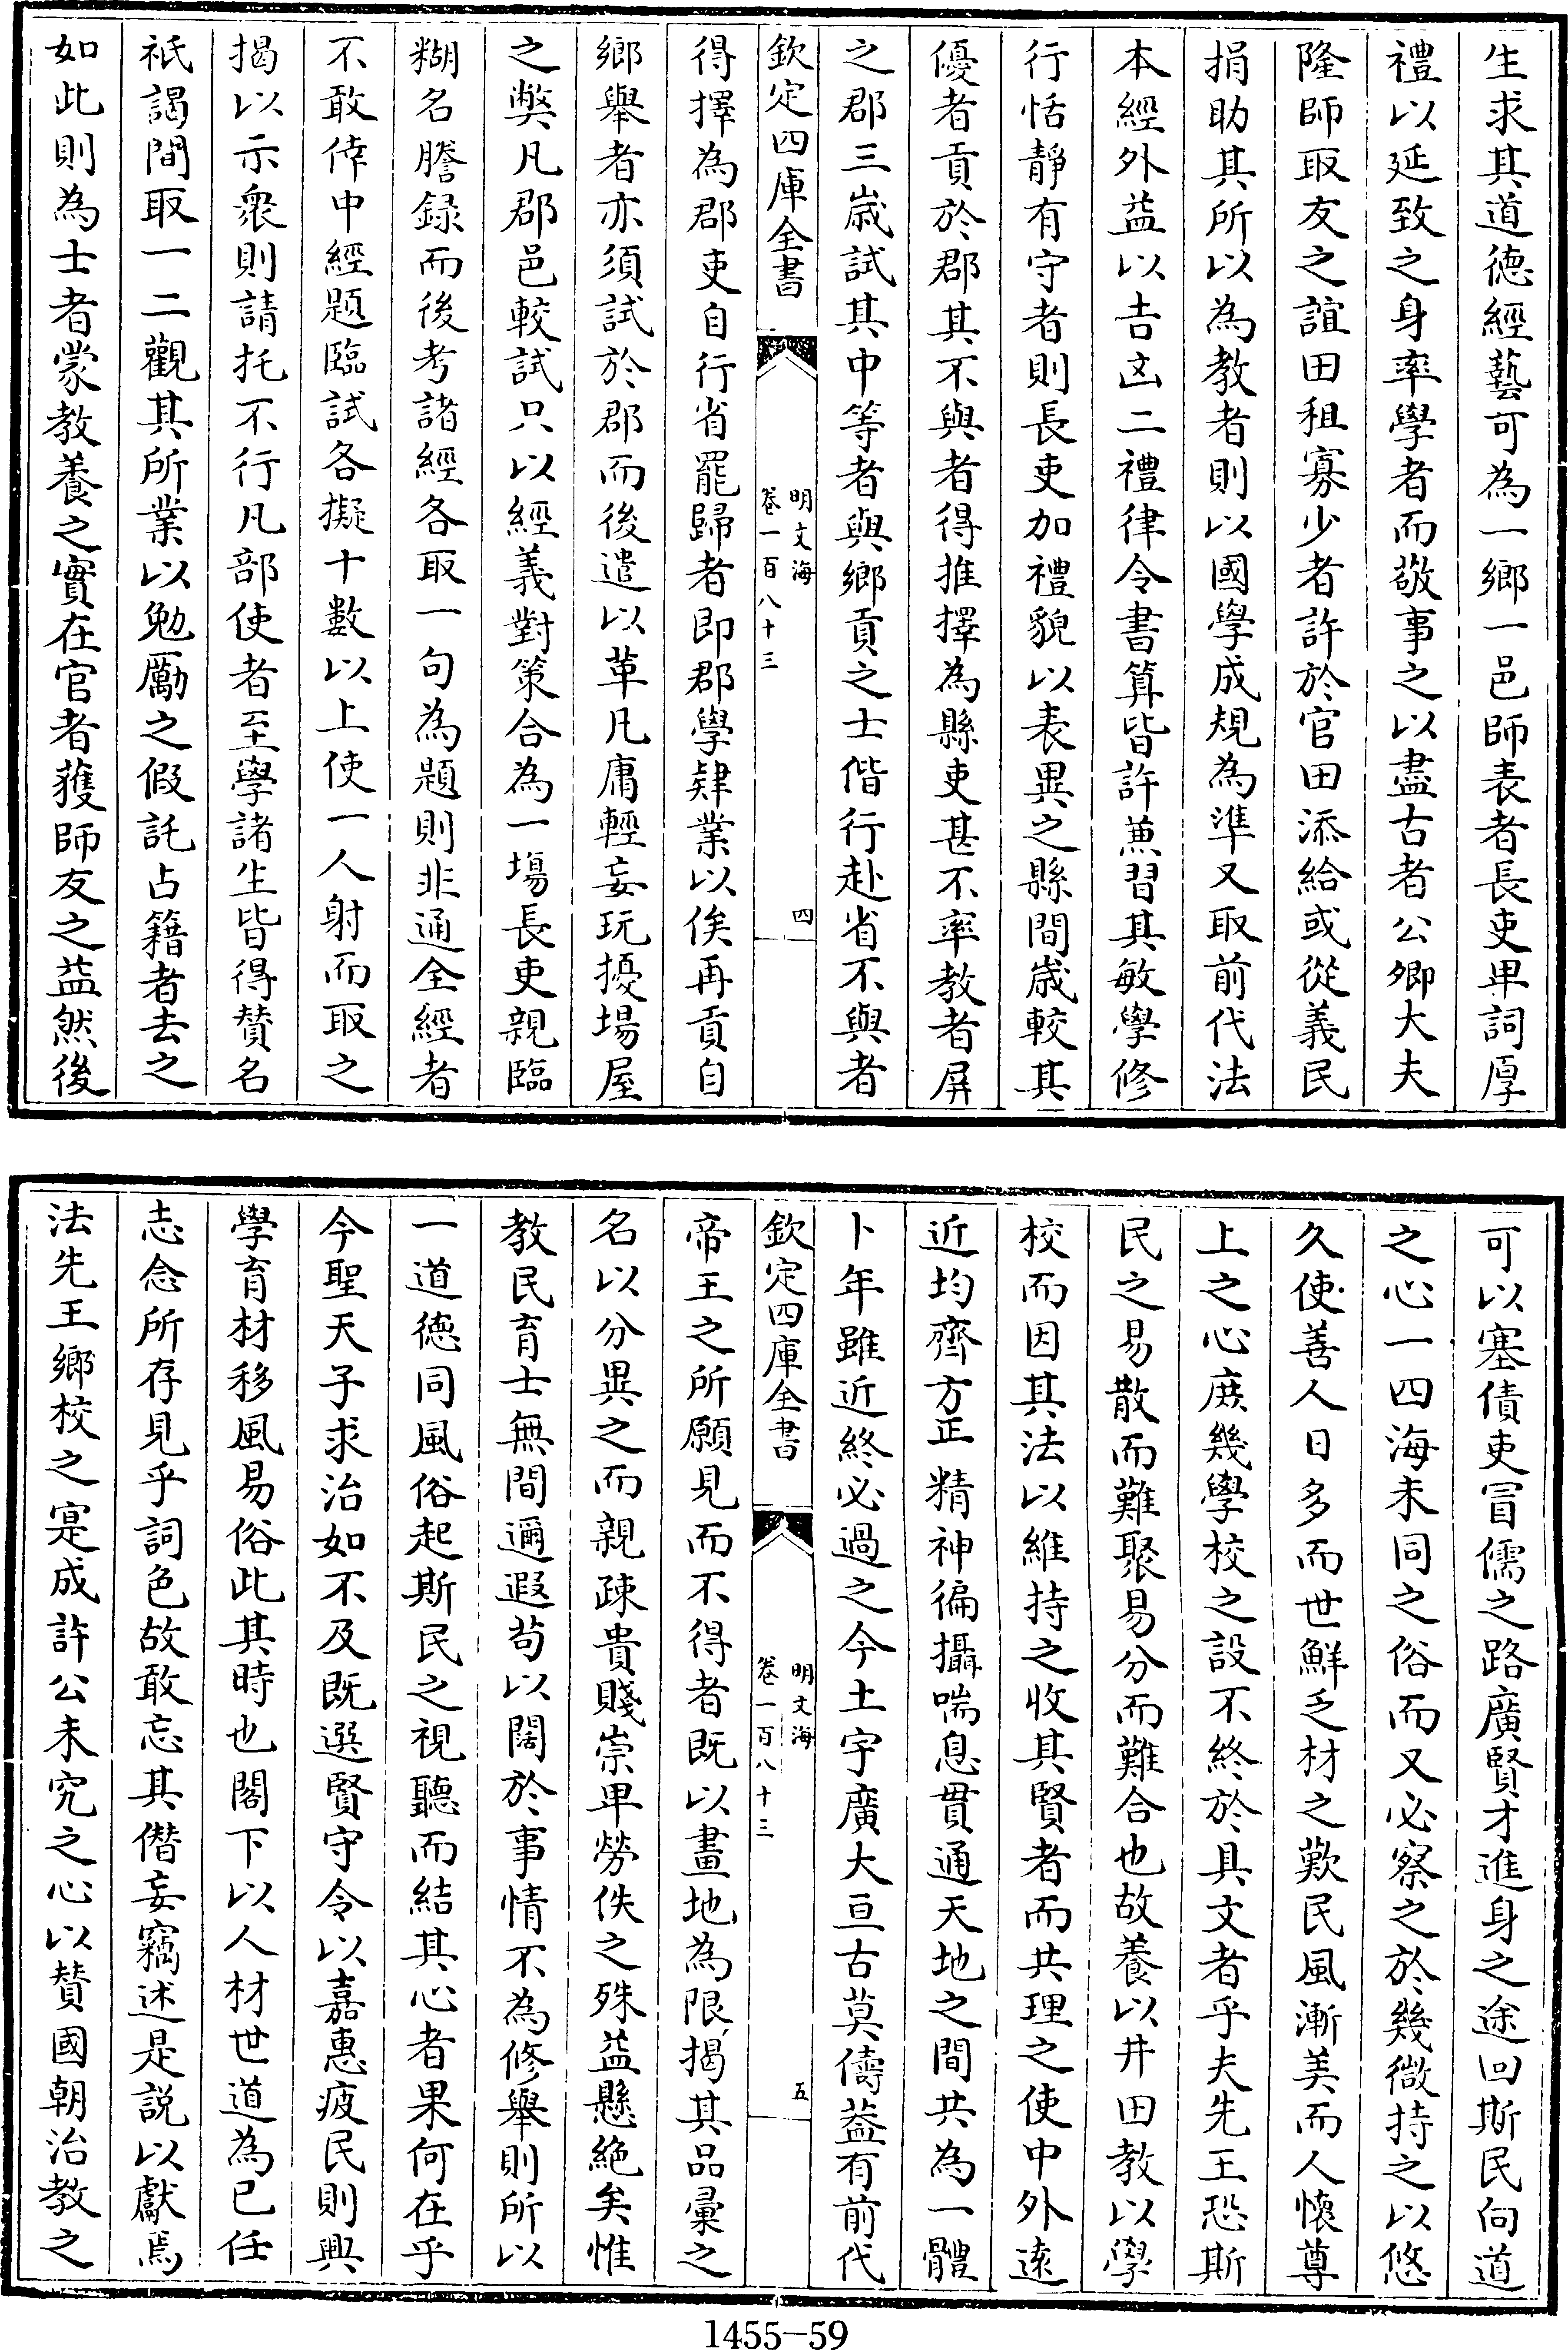 生求其道德經藝可為一鄉一邑師表者長吏卑詞厚
禮以延致之身率學者而敬事之以盡古者公卿大夫
隆師取友之誼田租寡少者許於官田添給或從義民
捐助其所以為教者則以國學成規為準又取前代法
本經外益以吉凶二禮律令書算皆許蕭習其敏學修
行恬靜有守者則長吏加禮貌以表異之縣間歲較其
優者貢於郡其不與者得推擇為縣吏甚不率教者屏
之郡三歲試其中等者與鄉貢之士偕行赴省不與者
欽定四庫全書
明文海
卷一百八十三
四
得擇為郡吏自行省罷歸者即郡學肄業以俟再貢自
鄉舉者亦須試於郡而後遣以革凡庸輕妄玩擾場屋
之弊凡郡邑較試只以經義對策合為一場長吏親臨
糊名謄錄而後考諸經各取一句為題則非通全經者
不敢倖中經題臨試各擬十數以上使一人射而取之
揭以示衆則請托不行凡部使者至學諸生皆得贊名
祇謁間取一二觀其所業以勉勵之假託占籍者去之
如此則為士者蒙教養之實在官者獲師友之益然後
可以塞債吏冒儒之路廣賢才進身之途回斯民向道
之心一四海未同之俗而又必察之於幾微持之以悠
久使善人日多而世鮮乏材之歎民風漸美而人懷尊
上之心庶幾學校之設不終於具文者乎夫先王恐斯
民之易散而難聚易分而難合也故養以井田教以學
校而因其法以維持之收其賢者而共理之使中外遠
近均齊方正精神徧攝喘息貫通天地之間共為一體
卜年雖近終必過之今土宇廣大亘古莫儔葢有前代
欽定四庫全書
明文海
卷一百八十三
五
帝王之所願見而不得者既以畫地為限揭其品彙之
名以分異之而親疎貴賤崇卑勞佚之殊益懸絶矣惟
教民育士無間邇遐苟以闊於事情不為修舉則所以
一道德同風俗起斯民之視聽而結其心者果何在乎
今聖天子求治如不及既選賢守令以嘉惠疲民則興
學育材移風易俗此其時也閣下以人材世道為已任
志念所存見乎詞色故敢忘其僭妄竊述是說以獻焉
法先王鄉校之寔成許公未究之心以賛國朝治教之
1455-59